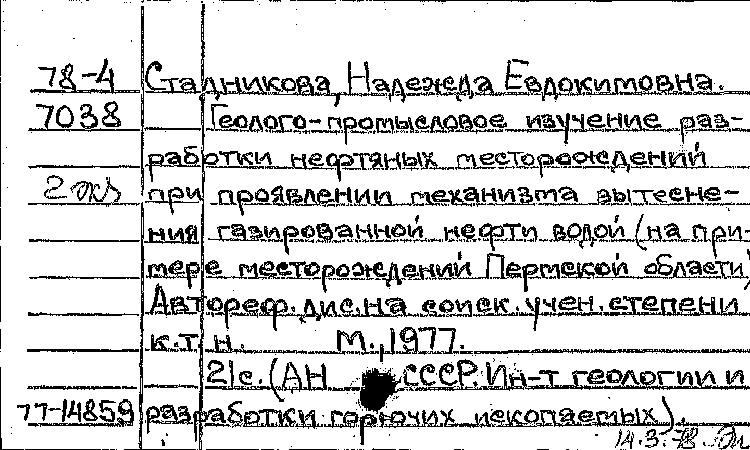 78-4 Стадникова, Надежда Евдокимовна.
7038 Геолого-промысловое изучение раз-
работки нефтяных месторождений
2 экз при проявлении механизма вытесне-
ния газированной нефти водой (на при-
мере месторождений Пермской области)
Автореф. дис. на соиск. учен. степени
к.т.н. М., 1977.
21с. (АН СССР. Ин-т геологии и
77-14859 разработки горючих ископаемых).
14.3.78